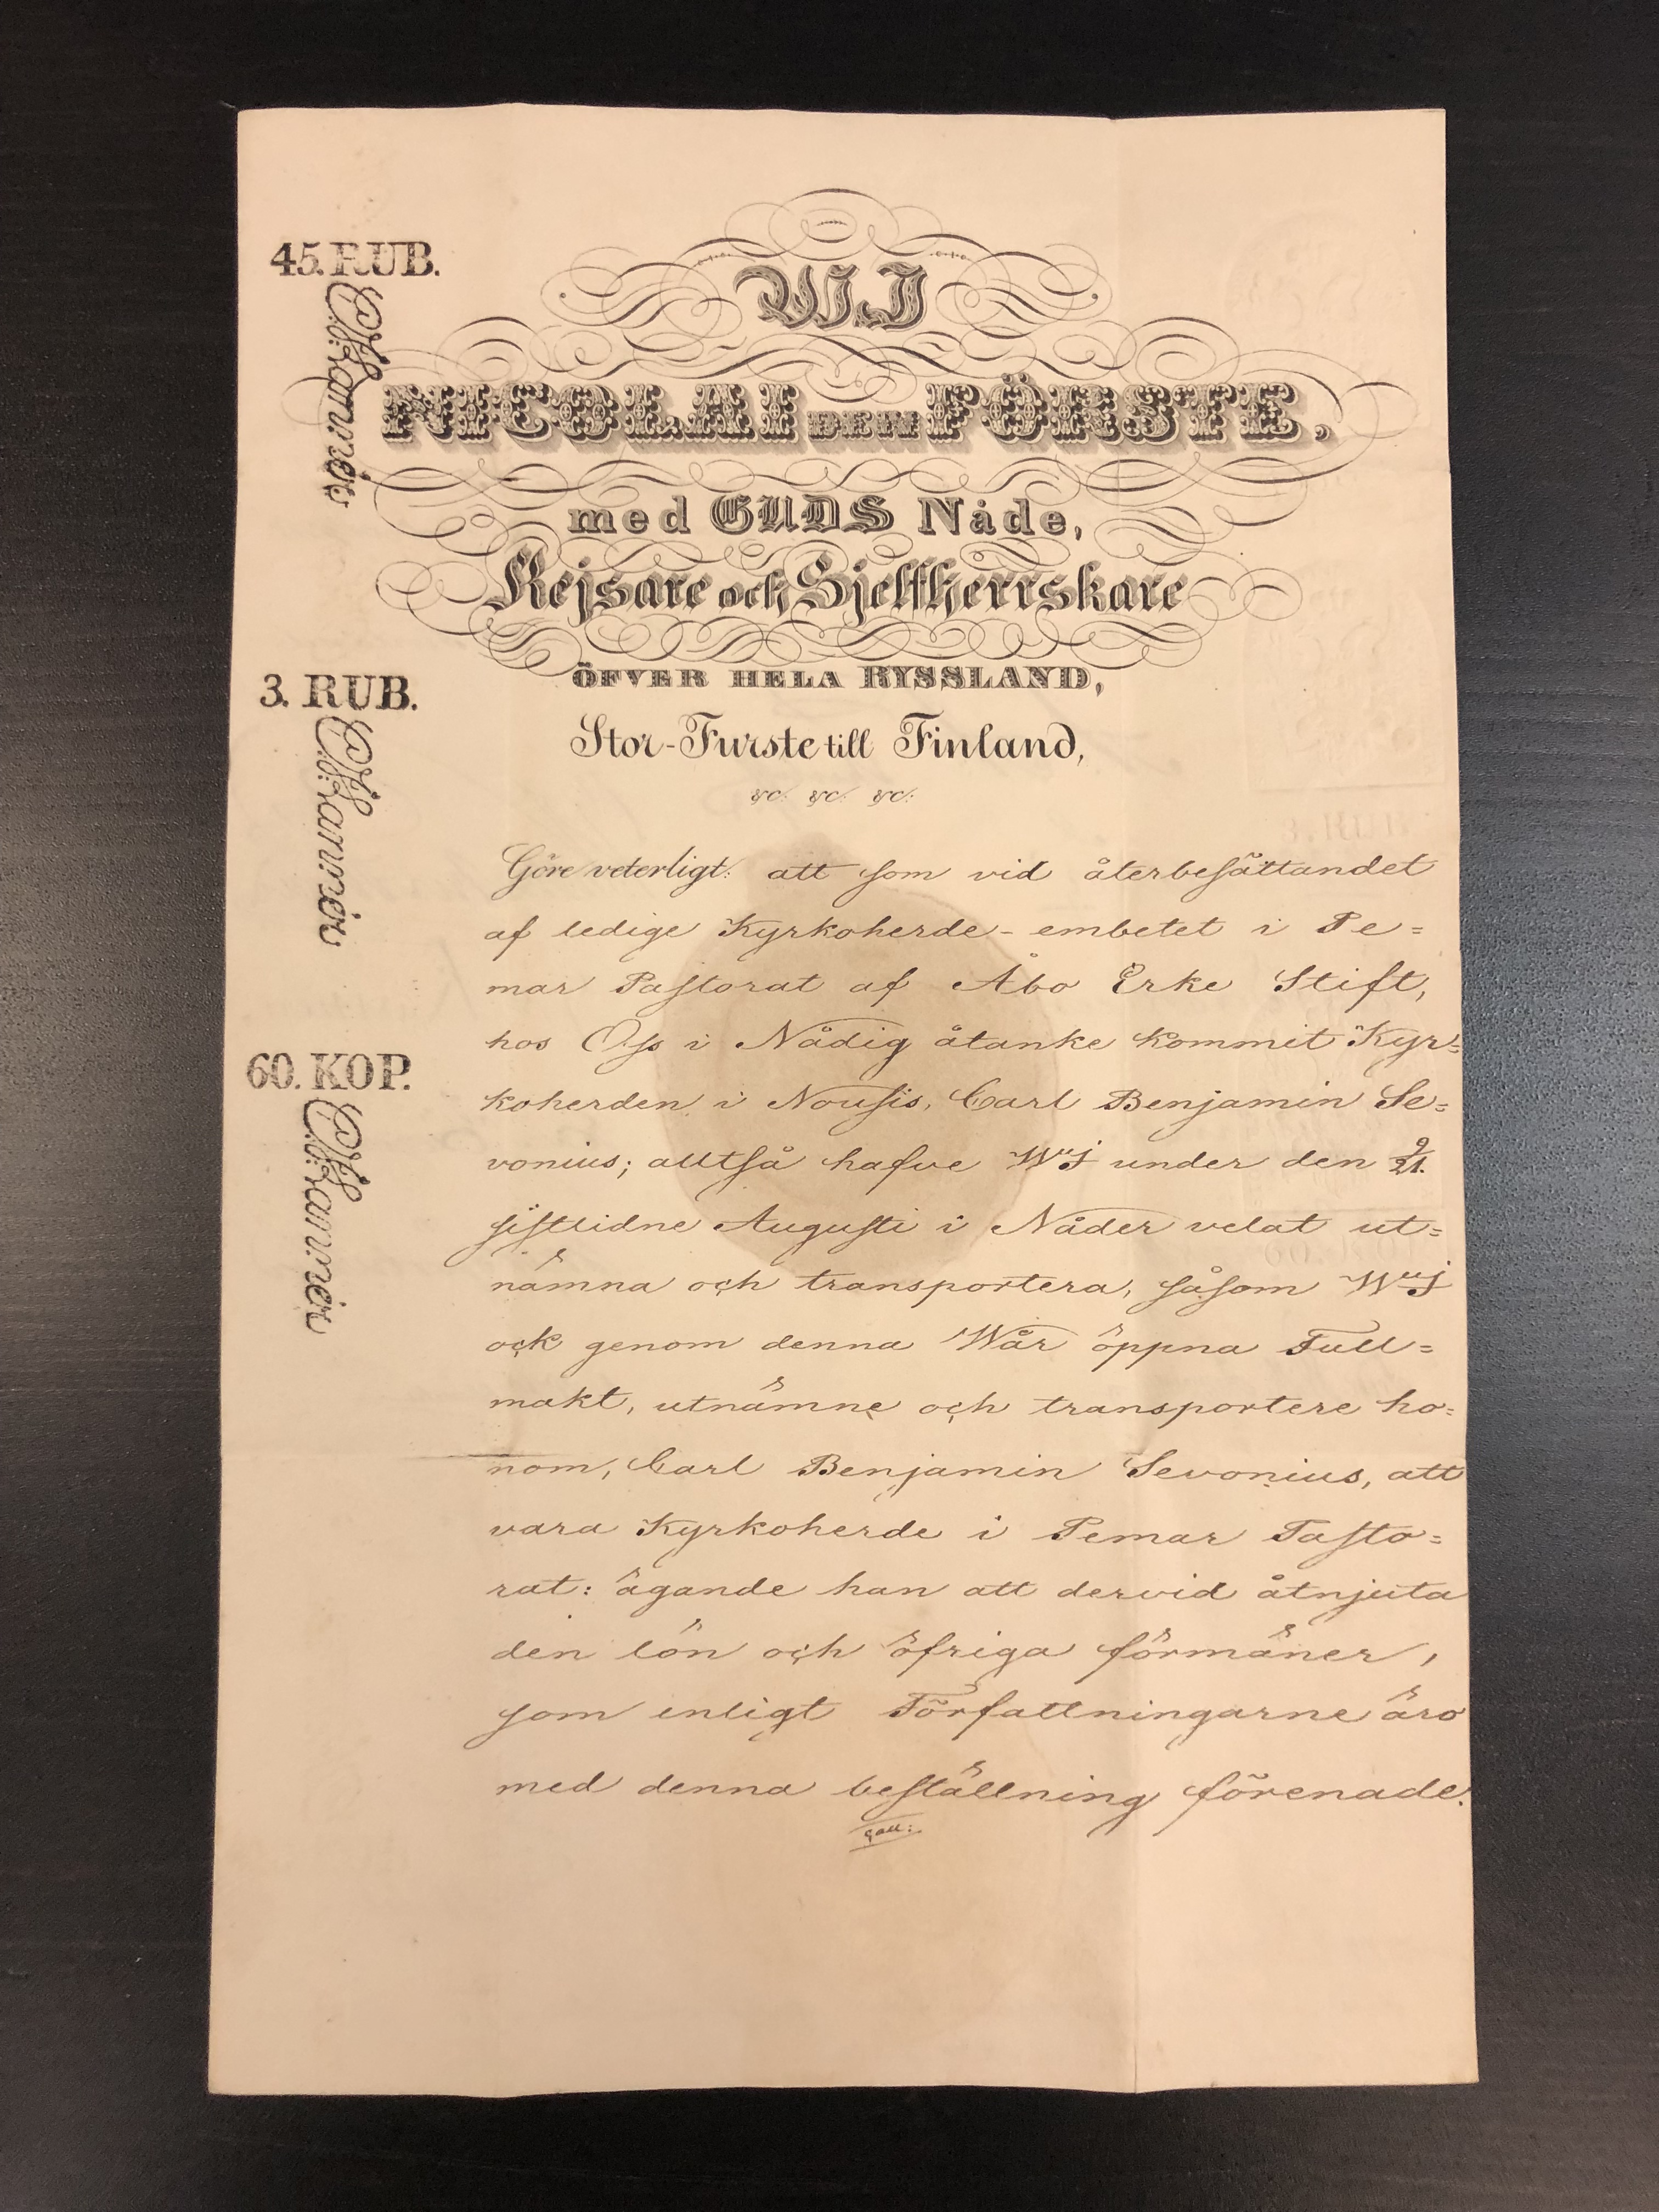 45. RUB.
WJ
NICOLAI DEN FÖRSTE,
med GUDS Nåde,
Kejsare och Sjelfherrskare
ÖFVER HELA RYSSLAND,
3. RUB.
Stor-Furste till Finland,
&c: &c: &c:
Göre veterligt: att som vid återbesättandet
af ledige Kyrkoherde-embetet i Pe=
mar Pastorat af Åbo Erke Stift,
hos Oss i Nådig åtanke kommit Kyr=
60. KOP.
koherden i Nousis, Carl Benjamin Se=
vonius; alltså hafve Wij under den 9/21.
sistlidne Augusti i Nåder velat ut=
nämna och transportera, såsom Wij
ock genom denna Wår öppna Full=
makt, utnämne och transportere ho=
nom, Carl Benjamin Sevonius, att
vara Kyrkoherde i Pemar Pasto=
rat: ägande han att dervid åtnjuta
den lön och öfriga förmåner,
som enligt Författningarne äro
med denna beställning förenade.